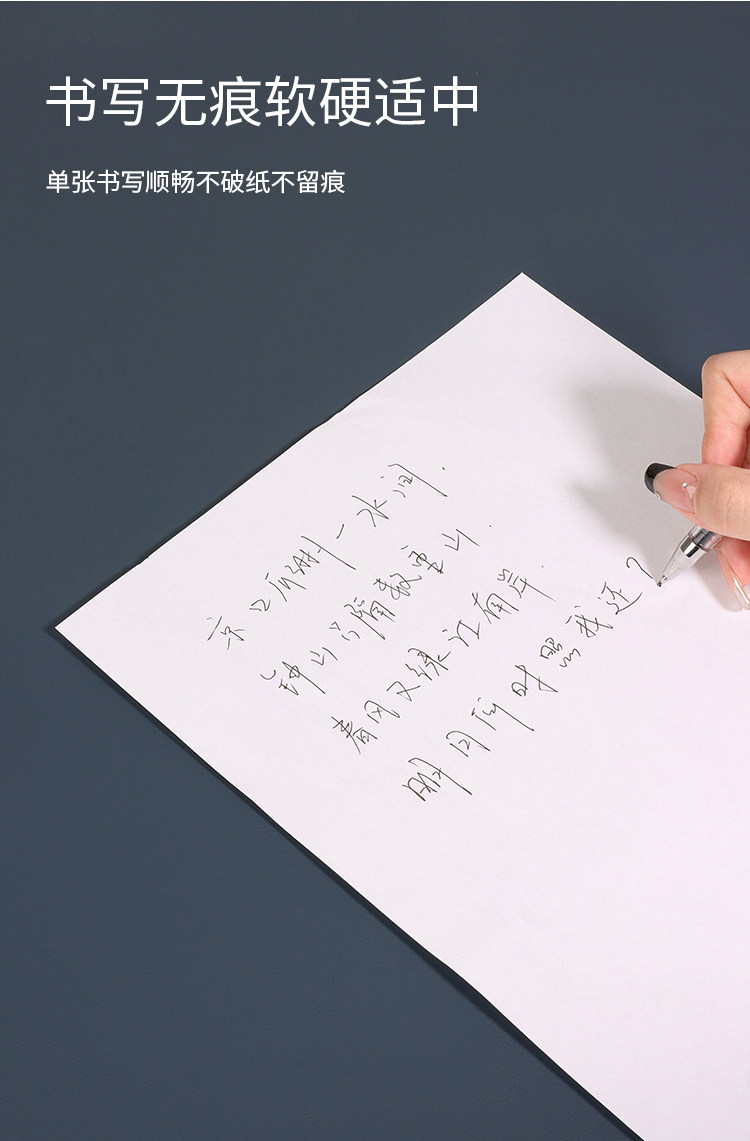 书写无痕软硬适中
单张书写顺畅不破纸不留痕
京口瓜洲一水间.
钟山只隔数重山.
春风又绿江南岸.
明月何时照我还?